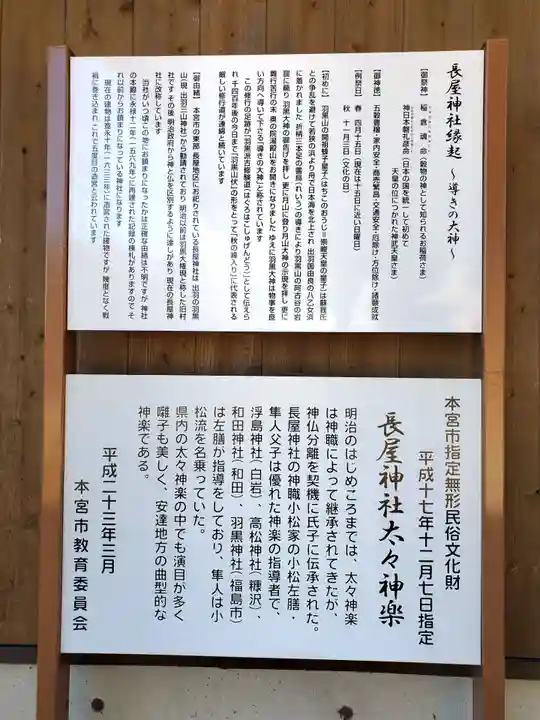 長屋神社縁起 ～導きの大神～
【御祭神】 稲倉魂命 （穀物の神として知られるお稲荷さま）
神日本磐礼彦命 （日本の国を統一して初めて
天皇の位につかれた神武天皇さま）
【御神徳】 五穀豊穣・家内安全・商売繁昌・交通安全・厄除け・方位除け・諸願成就
【例祭日】 春 四月十五日（現在は十五日に近い日曜日）
秋 十一月三日（文化の日）
【初めに】 羽黒山の開祖蜂子皇子（はちこのおうじ＝崇峻天皇の皇子）は蘇我氏
との争乱を避けて若狭の浜より舟で日本海を北上され 出羽国由良の八乙女浜
に着かれました 折柄三本足の霊烏（れいう）の導きにより羽黒山の阿古谷の岩
窟に籠り 羽黒大神の御告げを拝し 更に月山に登り月山大神の示現を拝し 更に
難行苦行の末 奥の院湯殿山をお開きになりました ゆえに羽黒大神は物事を良
い方向へ導いて下さる「導きの大神」と称されています
この修行の足跡が「羽黒派古修験道（はぐろはこしゅげんどう）」として伝えら
れ 千四百年後の今日まで「羽黒山伏」の形をとって「秋の峰入り」に代表される
厳しい修行道が連綿と続いています
【御由緒】 本宮市の東部 長屋地区にお祀りされている長屋神社は 出羽の羽黒
山（現 出羽三山神社）から勧請されており 明治以前は羽黒大権現と称した旧村
社です その後 明治政府から神と仏を区別するように達しがあり 現在の長屋神
社に改称しています
当社がいつ頃この地にお鎮まりになったかは正確な由緒は不明ですが 神社
の本殿に永禄十二年（一五六九年）に再建された記録の棟札がありますのでそ
れ以前からお鎮まりになっている神社になります
現在の建物は寛永十年（一六三三年）に造営された建物ですが 幾度となく戦
禍に巻き込まれ これで五度目の造営と云われています
本宮市指定無形民俗文化財
平成十七年十二月七日指定
長屋神社太々神楽
明治のはじめころまでは、太々神楽
は神職によって継承されてきたが、
神仏分離を契機に氏子に伝承された。
長屋神社の神職小松家の小松左膳・
隼人父子は優れた神楽の指導者で、
浮島神社（白岩）、高松神社（糠沢）、
和田神社（和田）、羽黒神社（福島市）
は左膳が指導をしており、隼人は小
松流を名乗っていた。
県内の太々神楽の中でも演目が多く
囃子も美しく、安達地方の曲型的な
神楽である。
平成二十三年三月
本宮市教育委員会